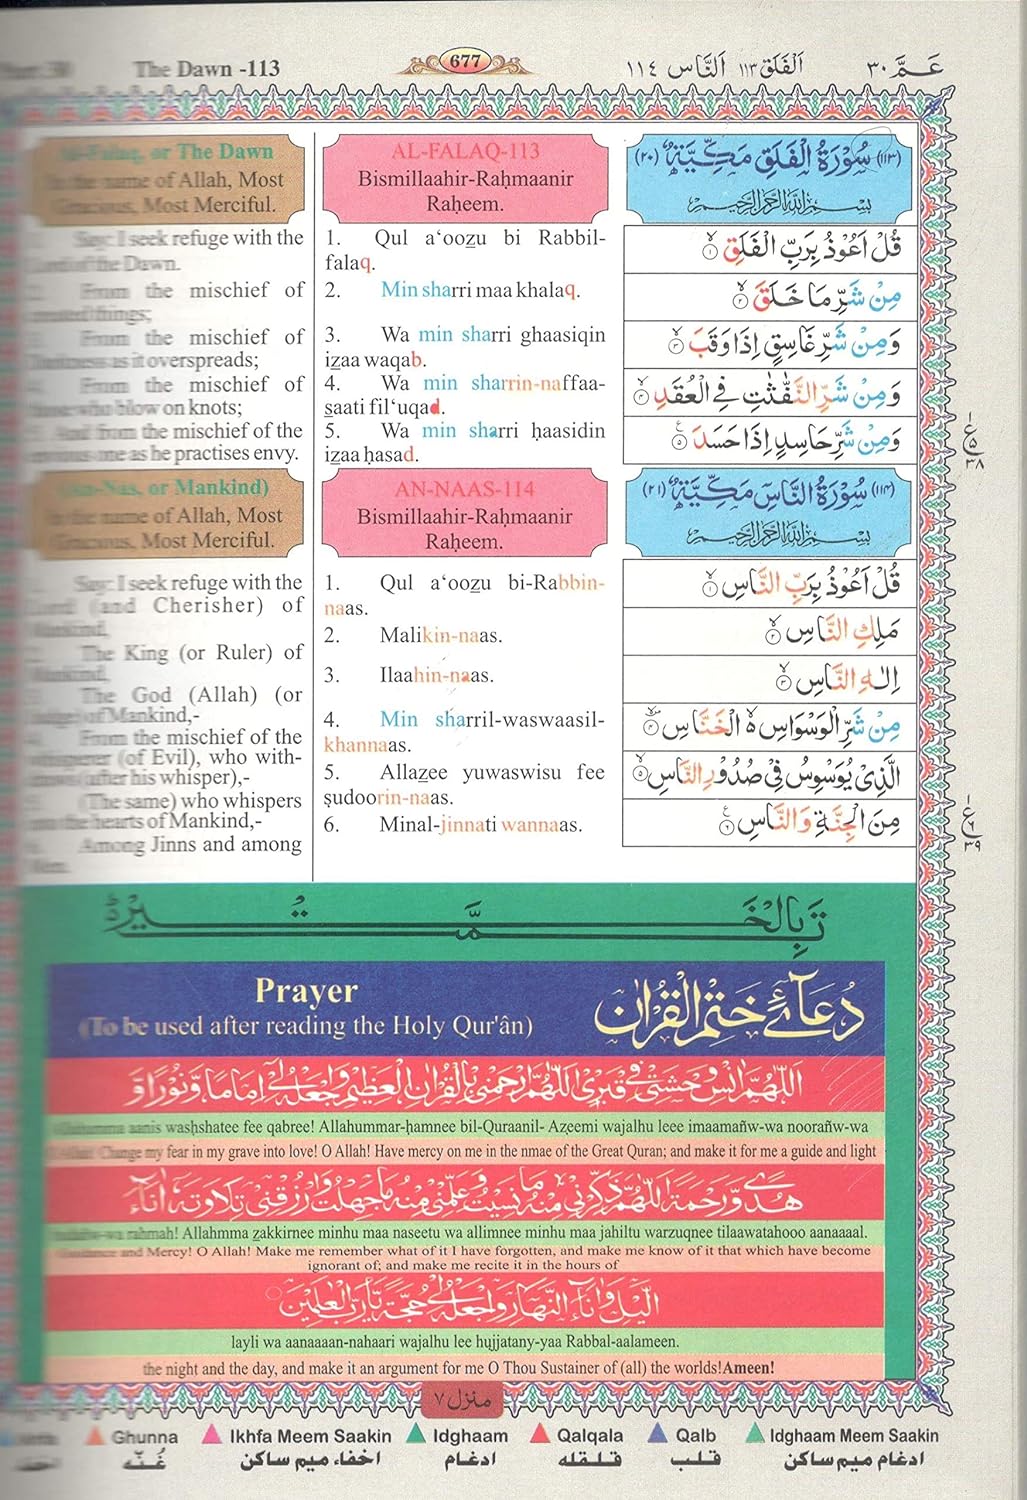 The Dawn -113
677
اَلْفَلَق ١١٣ اَلنَّاس ١١٤
عَمَّ ٣٠
or The Dawn
name of Allah, Most
Most Merciful.
Say: I seek refuge with the
of the Dawn.
From the mischief of
things;
From the mischief of
as it overspreads;
From the mischief of
who blow on knots;
And from the mischief of the
one as he practises envy.
or Mankind)
name of Allah, Most
Most Merciful.
Say: I seek refuge with the
(and Cherisher) of
The King (or Ruler) of
The God (Allah) (or
of Mankind,-
From the mischief of the
(of Evil), who with-
(after his whisper),-
(The same) who whispers
the hearts of Mankind,-
Among Jinns and among
AL-FALAQ-113
Bismillaahir-Raḥmaanir
Raḥeem.
1. Qul a‘oozu bi Rabbil-
falaq.
2. Min sharri maa khalaq.
3. Wa min sharri ghaasiqin
izaa waqab.
4. Wa min sharrin-naffaa-
saati fil‘uqad.
5. Wa min sharri ḥaasidin
izaa ḥasad.
AN-NAAS-114
Bismillaahir-Raḥmaanir
Raḥeem.
1. Qul a‘oozu bi-Rabbin-
naas.
2. Malikin-naas.
3. Ilaahin-naas.
4. Min sharril-waswaasil-
khannaas.
5. Allazee yuwaswisu fee
ṣudoorin-naas.
6. Minal-jinnati wannaas.
(١١٣) سُوْرَةُ الْفَلَقِ مَكِّيَّةٌ (٢٠)
بِسْمِ اللهِ الرَّحْمٰنِ الرَّحِيْمِ
قُلْ اَعُوْذُ بِرَبِّ الْفَلَقِ ١
مِنْ شَرِّ مَا خَلَقَ ٢
وَمِنْ شَرِّ غَاسِقٍ اِذَا وَقَبَ ٣
وَمِنْ شَرِّ النَّفّٰثٰتِ فِي الْعُقَدِ ٤
وَمِنْ شَرِّ حَاسِدٍ اِذَا حَسَدَ ٥
(١١٤) سُوْرَةُ النَّاسِ مَكِّيَّةٌ (٢١)
بِسْمِ اللهِ الرَّحْمٰنِ الرَّحِيْمِ
قُلْ اَعُوْذُ بِرَبِّ النَّاسِ ١
مَلِكِ النَّاسِ ٢
اِلٰهِ النَّاسِ ٣
مِنْ شَرِّ الْوَسْوَاسِ ۵ الْخَنَّاسِ ٤
الَّذِيْ يُوَسْوِسُ فِيْ صُدُوْرِ النَّاسِ ٥
مِنَ الْجِنَّةِ وَالنَّاسِ ٦
ع
٥
٣٨
ع
٦
٣٩
تَمَّتْ بِالْخَيْرِ
Prayer
(To be used after reading the Holy Qur'ân)
دُعَآئے خَتْمِ الْقُرْاٰن
اَللّٰهُمَّ اٰنِسْ وَحْشَتِيْ فِيْ قَبْرِيْ اَللّٰهُمَّ ارْحَمْنِيْ بِالْقُرْاٰنِ الْعَظِيْمِ وَاجْعَلْهُ لِيْ اِمَامًا وَّنُوْرًا وَّ
aanis waṣhshatee fee qabree! Allahummar-ḥamnee bil-Quraanil- Azeemi wajalhu leee imaamañw-wa noorañw-wa
Change my fear in my grave into love! O Allah! Have mercy on me in the nmae of the Great Quran; and make it for me a guide and light
هُدًى وَّرَحْمَةً اَللّٰهُمَّ ذَكِّرْنِيْ مِنْهُ مَا نَسِيْتُ وَعَلِّمْنِيْ مِنْهُ مَا جَهِلْتُ وَارْزُقْنِيْ تِلَاوَتَهٗ اٰنَآءَ
rahmah! Allahmma zakkirnee minhu maa naseetu wa allimnee minhu maa jahiltu warzuqnee tilaawatahooo aanaaaal.
and Mercy! O Allah! Make me remember what of it I have forgotten, and make me know of it that which have become
ignorant of; and make me recite it in the hours of
الَّيْلِ وَاٰنَآءَ النَّهَارِ وَاجْعَلْهُ لِيْ حُجَّةً يَّا رَبَّ الْعٰلَمِيْنَ
layli wa aanaaaan-nahaari wajalhu lee hujjatany-yaa Rabbal-aalameen.
the night and the day, and make it an argument for me O Thou Sustainer of (all) the worlds!Ameen!
منزل ٧
Ghunna Ikhfa Meem Saakin Idghaam Qalqala Qalb Idghaam Meem Saakin
غُنّه اخفاء ميم ساكن ادغام قلقله قلب ادغام ميم ساكن